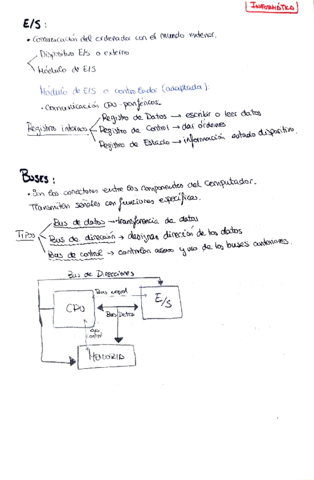 INFORMÁTICA
E/S:
• Comunicación del ordenador con el mundo exterior.
Dispositivo E/S o externo
Módulo de E/S
Módulo de E/S o controlador (adaptada):
• Comunicación CPU-periféricos.
Registro de Datos → escribir o leer datos
Registros internos Registro de Control → dar órdenes
Registro de Estado → información estado dispositivo.
BUSES:
• Son los conectores entre los componentes del computador.
Transmiten señales con funciones específicas.
Bus de datos → transferencia de datos
TIPOS Bus de dirección → designar dirección de los datos
Bus de control → controlan acceso y uso de los buses anteriores.
Bus de Direcciones
Bus control
CPU
E/S
Bus Datos
Bus control
MEMORIA